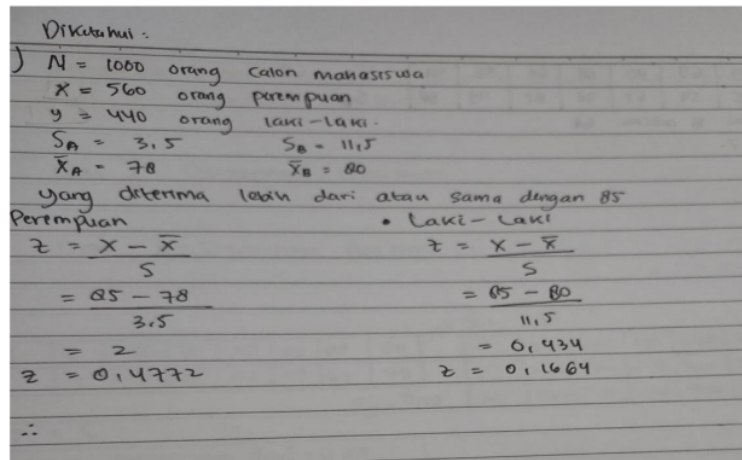 Diketahui :
) N = 1000 orang calon mahasiswa
x = 560 orang perempuan
y = 440 orang laki-laki.
SA = 3,5 SB = 11,5
X̄A = 78 X̄B = 80
yang diterima lebih dari atau sama dengan 85
Perempuan • Laki-Laki
z = x - x̄ / s z = x - x̄ / s
= 85 - 78 / 3.5 = 85 - 80 / 11,5
= 2 = 0,434
z = 0,4772 z = 0,1664
∴